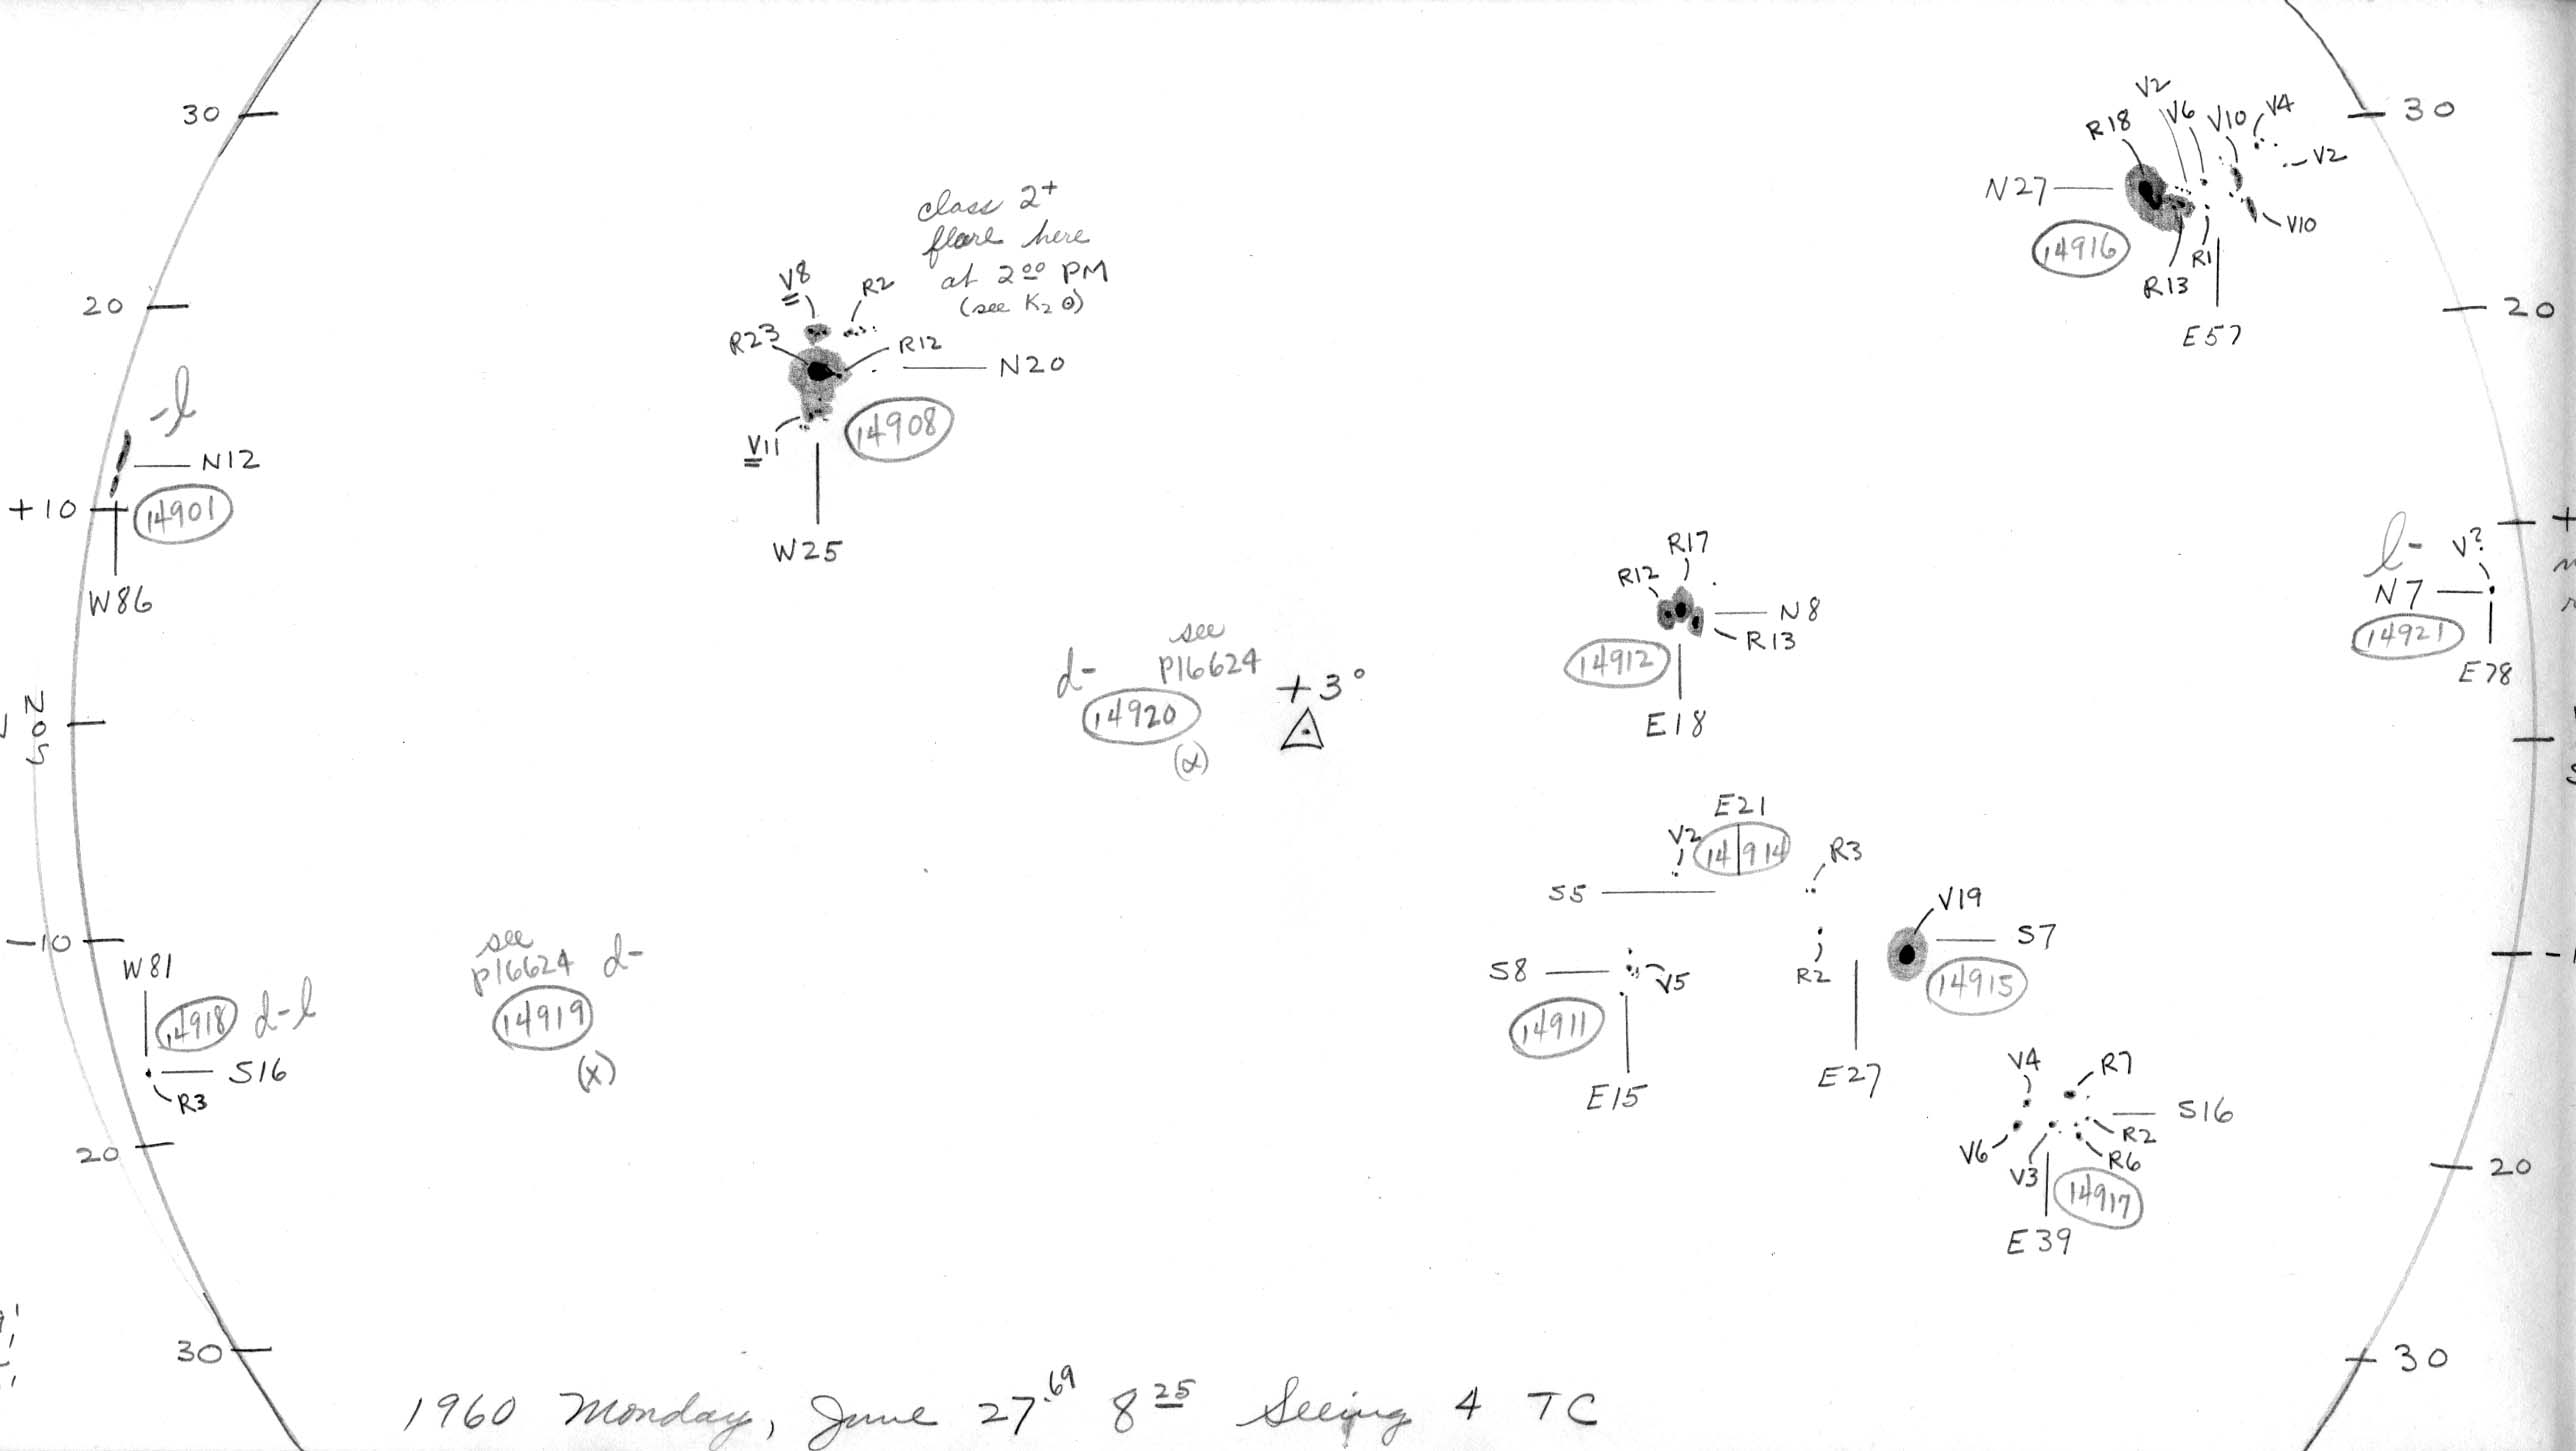 30
20
-l
N12
+10
14901
W86
N
0
S
-10
W81
14918 d-l
S16
R3
20
30
class 2+
flare here
at 2⁰⁰ PM
(see K₂ ⊙)
V8
R2
R23
R12
N20
14908
V11
W25
see
P16624
d-
14920
(α)
+3°
see
P16624 d-
14919
(x)
R17
R12
N8
R13
14912
E18
E21
V2
14914
R3
S5
V19
S7
14915
R2
E27
S8
V5
14911
E15
V4
R7
S16
R2
R6
V6
V3
14917
E39
V2
V6
V10
V4
R18
V2
N27
V10
14916
R1
R13
E57
30
20
l-
V?
N7
14921
E78
20
30
1960 Monday, June 27.⁶⁹ 8²⁵ Seeing 4 TC